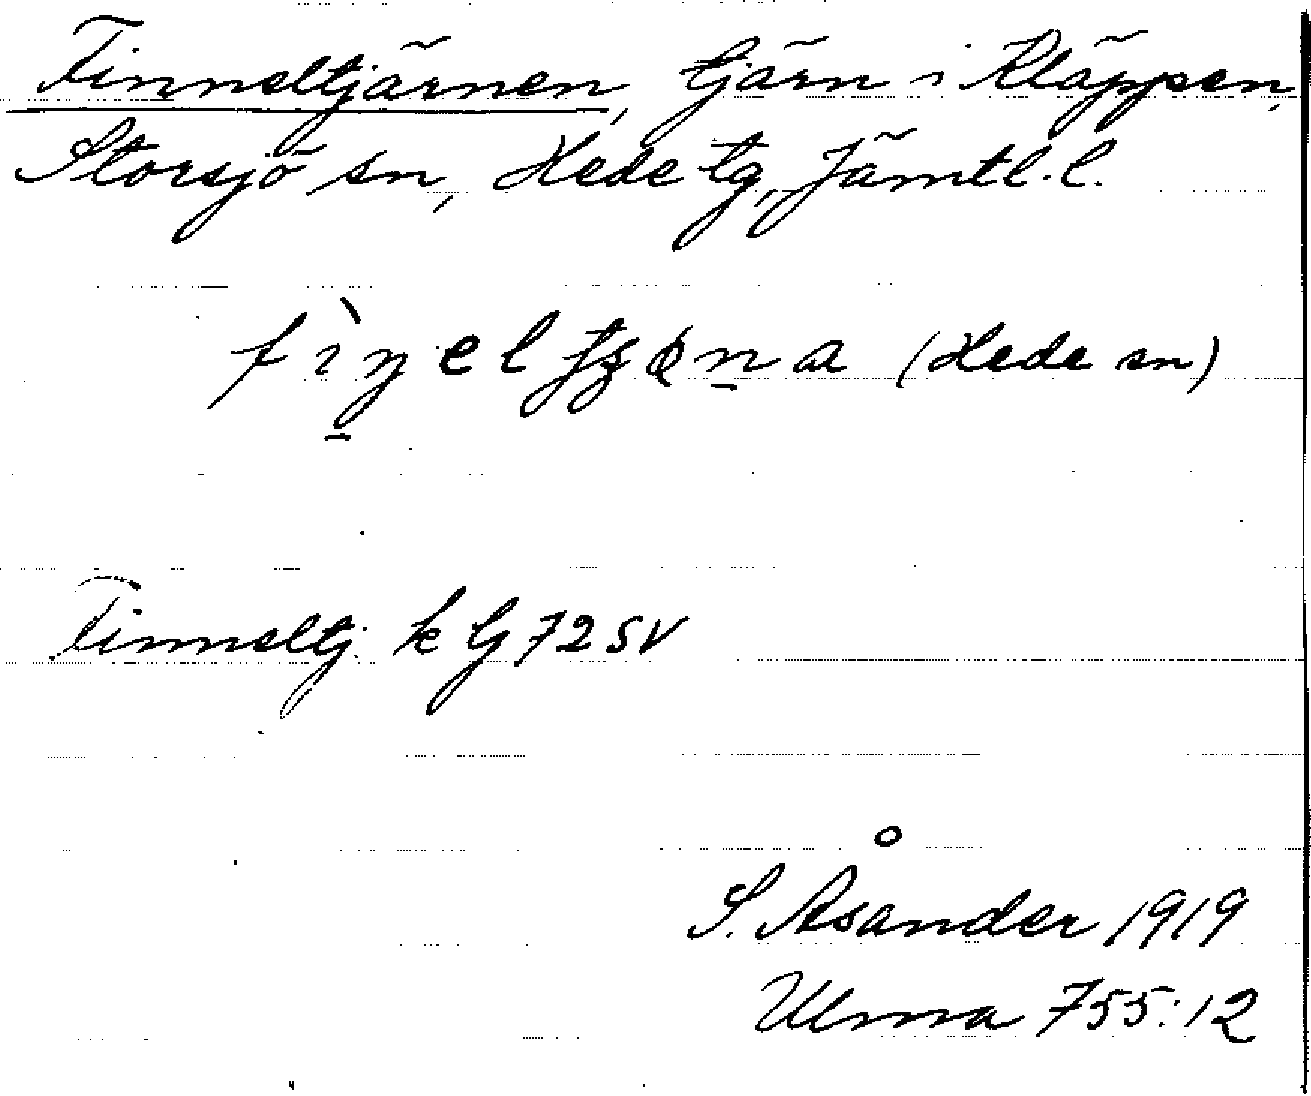 Finneltjärnen, tjärn i Kläppen,
Storsjö sn, Hede tg, Jämtl. l.
(Hede sn)
Finneltj. k G 72 SV
S. Åsander 1919
Ulma 755:12